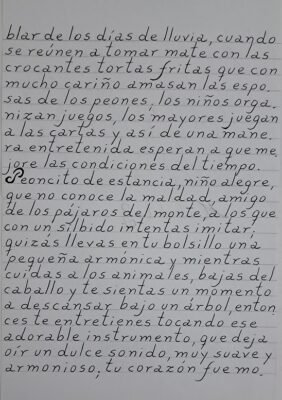 blar de los días de lluvia, cuando
se reúnen a tomar mate con las
crocantes tortas fritas que con
mucho cariño amasan las espo
sas de los peones, los niños orga.
nizan juegos, los mayores juegan
a las cartas y así de una mane.
ra entretenida esperan a que me
jore las condiciones del tiempo.
Peoncito de estancia, niño alegre,
que no conoce la maldad, amigo
de los pájaros del monte, a los que
con un silbido intentas imitar,
quizás llevas en tu bolsillo una
pequeña armónica y mientras
cuidas a los animales, bajas del
caballo y te sientas un momento
a descansar bajo un árbol, enton
ces te entretienes tocando ese
adorable instrumento, que deja
oír un dulce sonido, muy suave y
armonioso; tu corazón fue mo.